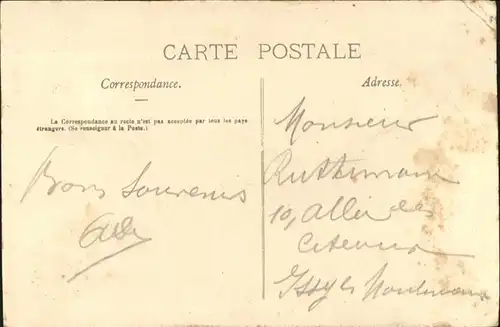 CARTE POSTALE
Correspondance.
Adresse.
La Correspondance au recto n'est pas acceptée par tous les pays
étrangers. (Se renseigner à la Poste.)
Bons Souvenirs
Monsieur
10, allée des
Issy les Moulineaux